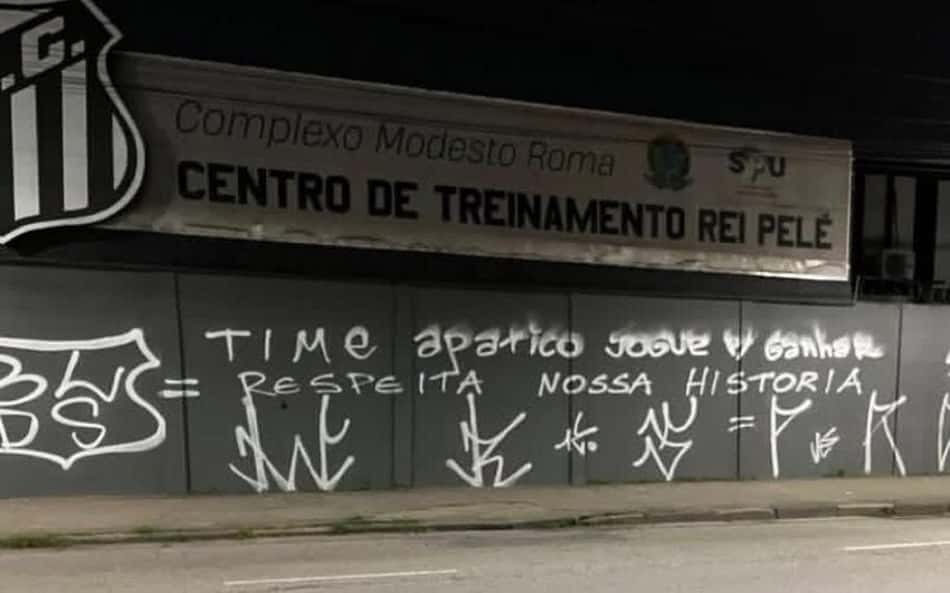 .C.
Complexo Modesto Roma
SPU
CENTRO DE TREINAMENTO REI PELÉ
TIMe apatico JOGUE P/ GanhaR
= RESPEITA NOSSA HISTORIA